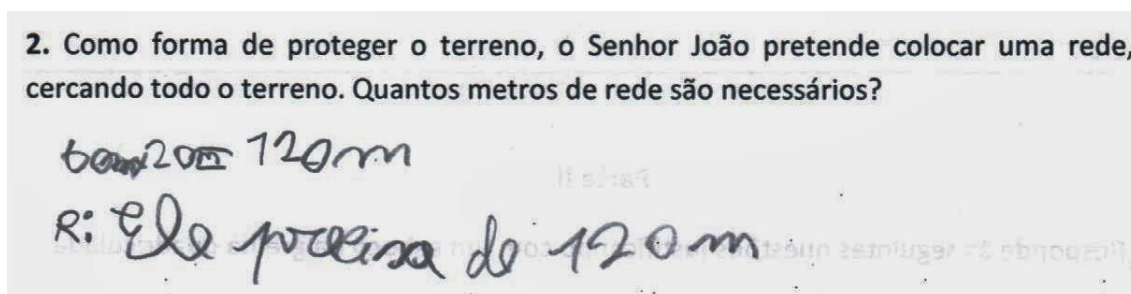 2. Como forma de proteger o terreno, o Senhor João pretende colocar uma rede,
cercando todo o terreno. Quantos metros de rede são necessários?
120m
R: Ele precisa de 120 m
Parte II